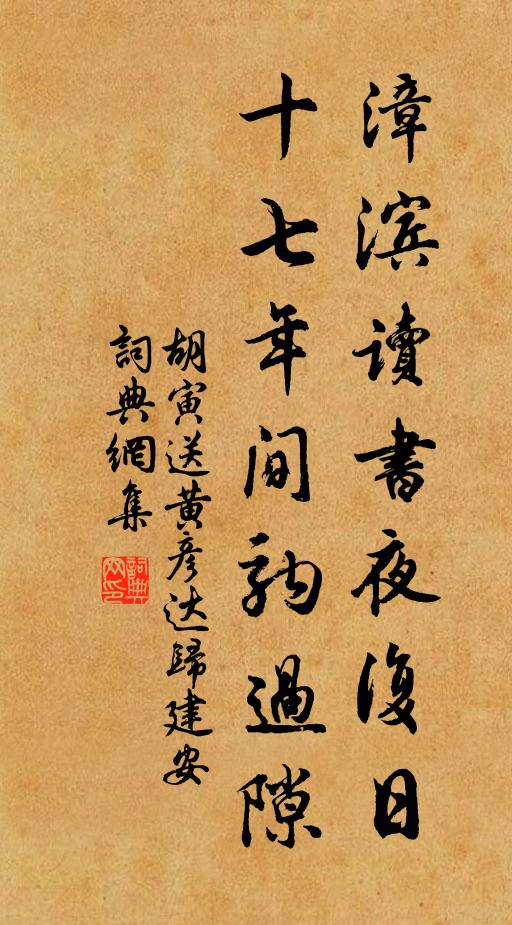 漳滨讀書夜復日
十七年間駒過隙
胡寅送黄彦达歸建安
詞典網集
詞典网印